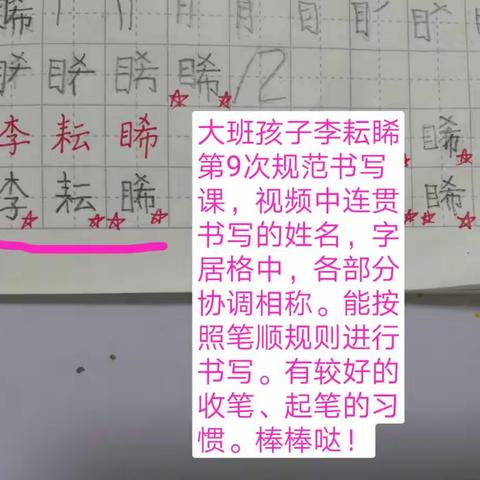 睎
目
睎 睎 睎
李 耘 睎
李 耘 睎
睎
睎
大班孩子李耘睎
第9次规范书写
课，视频中连贯
书写的姓名，字
居格中，各部分
协调相称。能按
照笔顺规则进行
书写。有较好的
收笔、起笔的习
惯。棒棒哒！